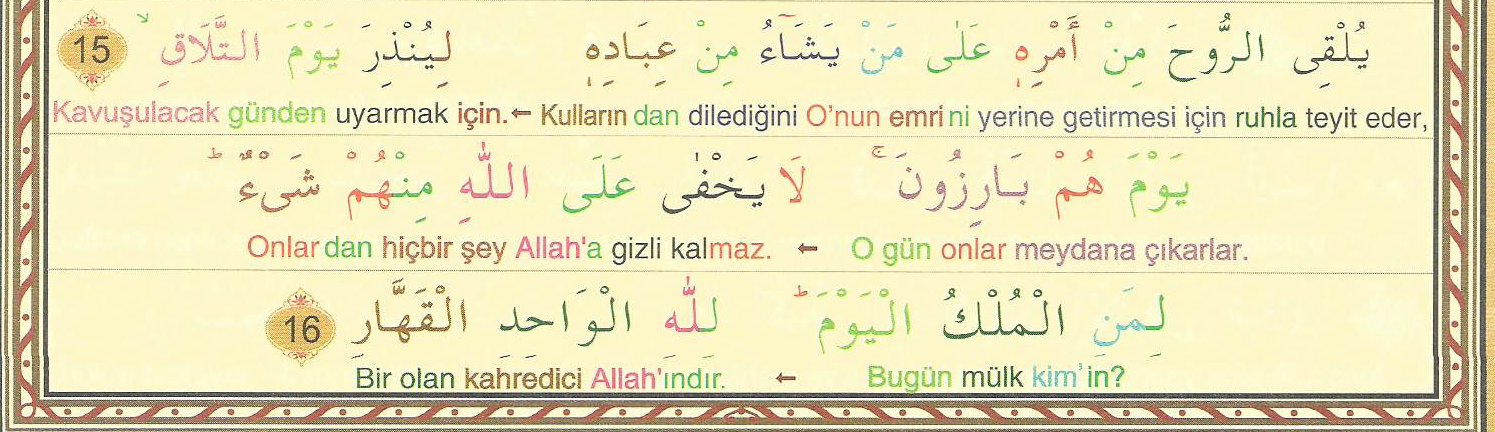 يُلْقِى الرُّوحَ مِنْ أَمْرِهٖ عَلٰى مَنْ يَشَآءُ مِنْ عِبَادِهٖ لِيُنْذِرَ يَوْمَ التَّلَاقِ ۙ 15
Kavuşulacak günden uyarmak için.← Kullarından dilediğini O’nun emrini yerine getirmesi için ruhla teyit eder,
يَوْمَ هُمْ بَارِزُونَ ۚ لَا يَخْفٰى عَلَى اللّٰهِ مِنْهُمْ شَىْءٌ ؕ
Onlardan hiçbir şey Allah'a gizli kalmaz. ← O gün onlar meydana çıkarlar.
لِمَنِ الْمُلْكُ الْيَوْمَ ؕ لِلّٰهِ الْوَاحِدِ الْقَهَّارِ 16
Bir olan kahredici Allah'ındır. ← Bugün mülk kim’in?